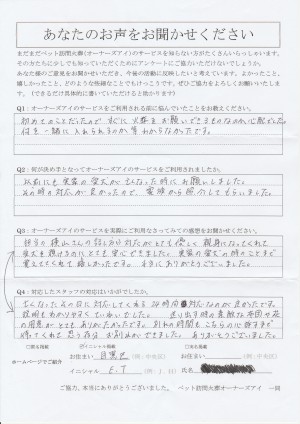 あなたのお声をお聞かせください
まだまだペット訪問火葬(オーナーズアイ)のサービスを知らない方がたくさんいらっしゃいます。
その方たちに少しでも知っていただくためにアンケートにご協力いただけないでしょうか。
あなた様のご意見をお聞かせいただき、今後の活動に反映したいと考えています。よかったこと、
嬉しかったこと、どのような些細なことでもけっこうです。ぜひご協力をよろしくお願いいたします。
(できるだけ具体的に書いていただけると助かります)
Q1:オーナーズアイのサービスをご利用される前に悩んでいたことをお教えください。
初めてのことだったので、すぐに火葬をお願いできるものなのか心配だった。
何を一緒に入れられるのか等わからなかったです。
Q2:何が決め手となってオーナーズアイのサービスをご利用されましたか。
以前にも実家の愛犬が亡くなった時にお願いしました。
その時の対応が良かったので、家族から紹介してもらいました。
Q3:オーナーズアイのサービスを実際にご利用なさってみての感想をお聞かせください。
担当の横山さんの話し方や対応がとても優しく、親身になってくれて
愛犬を預けるのにとても安心できました。実家の愛犬の時のことまで
覚えてくれていて嬉しかったです。本当にありがとうございました。
Q4:対応したスタッフの対応はいかがでしたか。
亡くなったその日に対応してくれる24時間対応なのが良かったです。
説明もわかりやすくていねいでした。送り出す時の素敵な布団や花
の用意がとてもありがたかったです。お別れの時間もこちらの心が
待ってくれ、思う存分お別れができました。ありがとうございました。
□匿名掲載
イニシャル掲載
□氏名掲載
お住まい 目黒区 (例:中央区)
お住まい (例:中央区)
ホームページでご紹介
イニシャル E.T (例:J.H)
氏名
ご協力、本当にありがとうございました。 ペット訪問火葬オーナーズアイ 一同